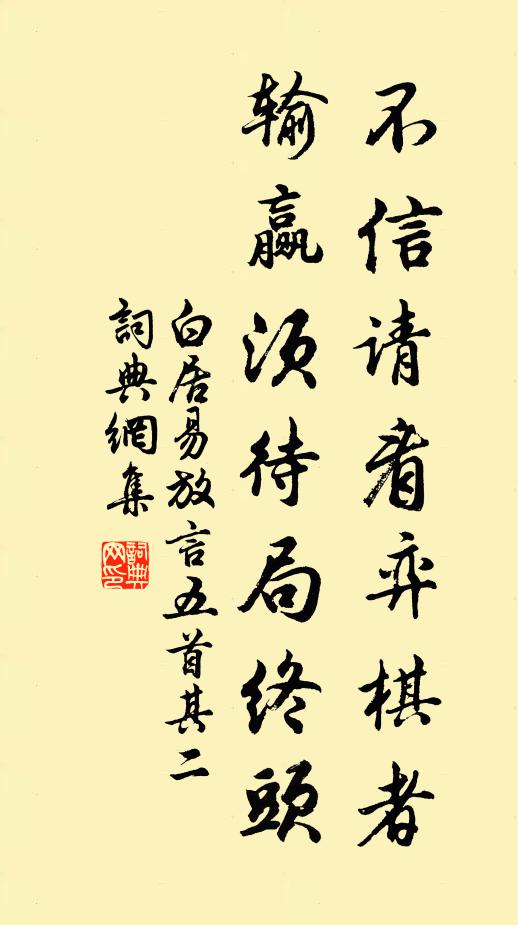 不信请看弈棋者
输赢须待局终頭
白居易放言五首其二
詞典網集
詞典
网印